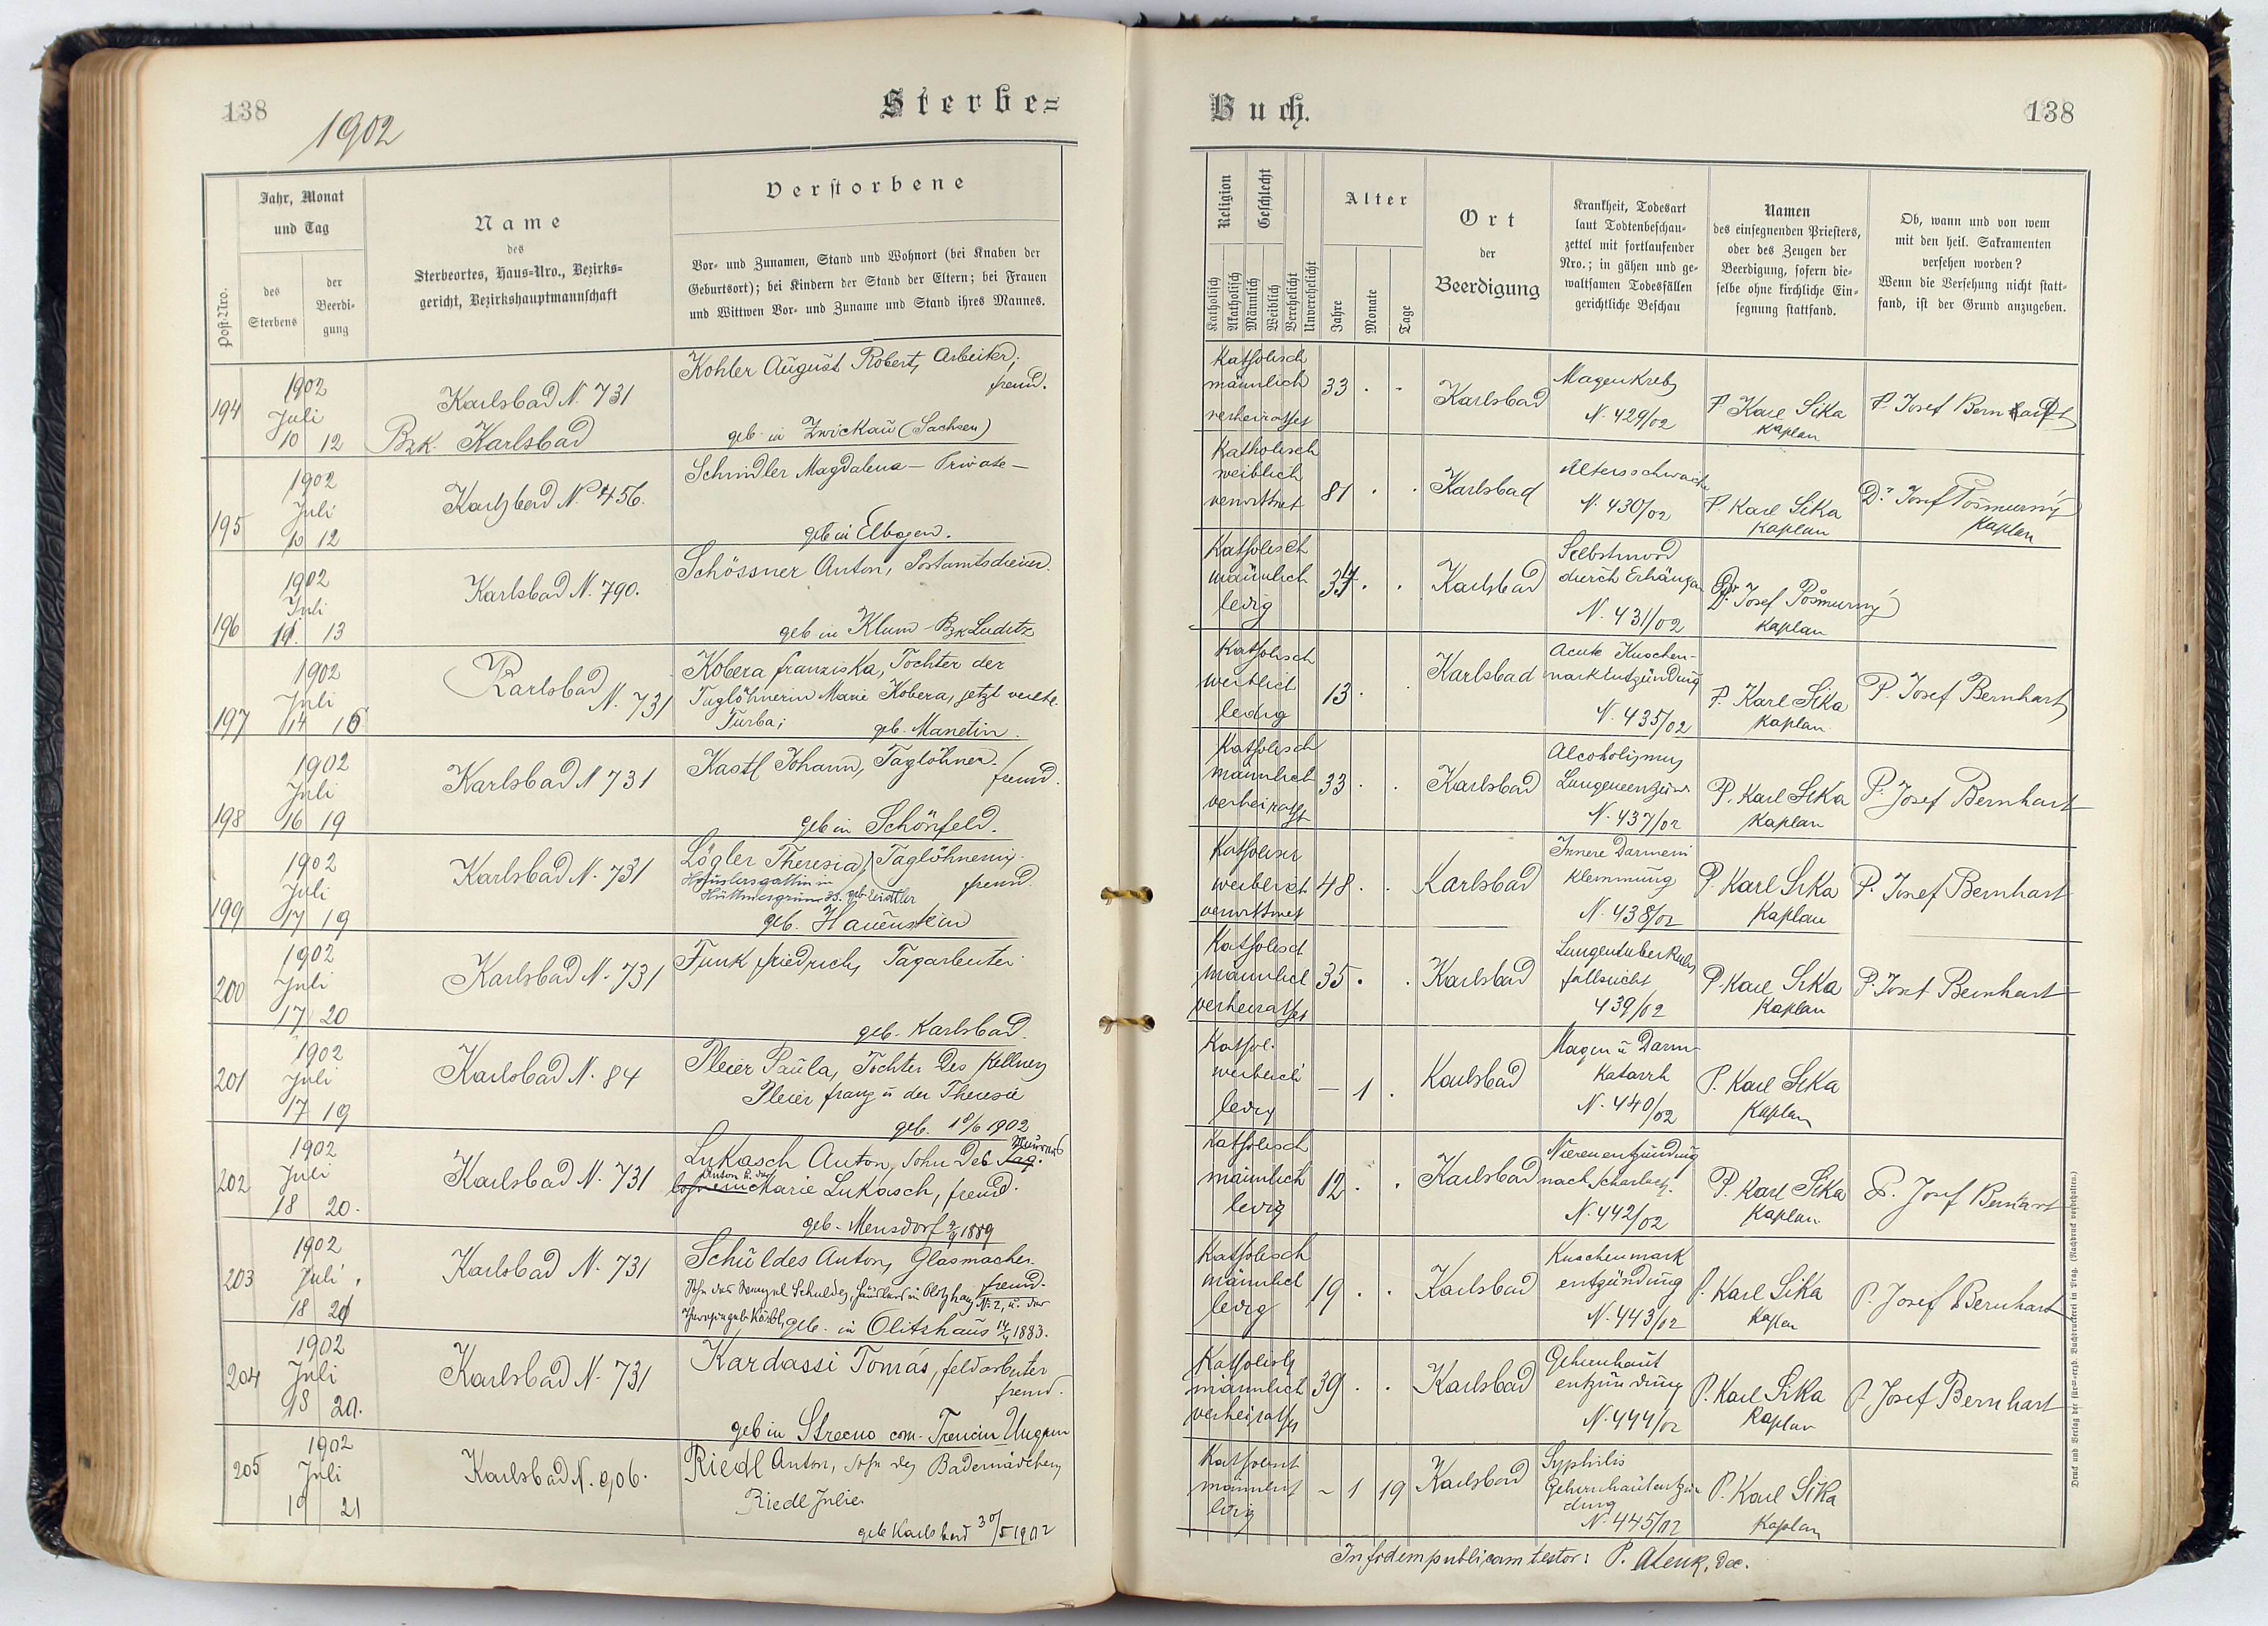 138
1902
Sterbe=
Post-Nro.
Jahr, Monat
und Tag
des
Sterbens
der
Beerdi-
gung
Name
des
Sterbeortes, Haus-Nro., Bezirks-
gericht, Bezirkshauptmannschaft
Verstorbene
Vor- und Zunamen, Stand und Wohnort (bei Knaben der
Geburtsort); bei Kindern der Stand der Eltern; bei Frauen
und Wittwen Vor- und Zuname und Stand ihres Mannes.
194
1902
Juli
10 12
Karlsbad N. 731
Bzk. Karlsbad
Kohler August Robert, Arbeiter,
fremd.
geb. in Zwickau (Sachsen)
195
1902
Juli
10 12
Karlsbad No 456.
Schindler Magdalena – Private –
geb in Elbogen.
196
1902
Juli
11. 13
Karlsbad N. 790.
Schössner Anton, Postamtsdiener.
geb. in Klum – Bzk Luditz
197
1902
Juli
14 16
Karlsbad
N. 731
Kobera Franziska, Tochter der
Taglöhnerin Marie Kobera, jetzt verehe.
Turba;
geb. Manetin.
198
1902
Juli
16 19
Karlsbad N 731
Kastl Johann, Taglöhner.
fremd.
geb in Schönfeld.
199
1902
Juli
17 19
Karlsbad N. 731
Lögler Theresia, Taglöhnerin.
Häuslersgattin in
fremd.
Hüttmesgrün 33. geb.
geb. Hauenstein
200
1902
Juli
17 20
Karlsbad N. 731
Funk Friedrich, Tagarbeiter
geb. Karlsbad.
201
1902
Juli
17 19
Karlsbad N. 84
Pleier Paula, Tochter des Kellners
Pleier Franz u der Theresie
geb. 10/6 1902
202
1902
Juli
18 20.
Karlsbad N. 731
Maurers
Lukasch Anton, Sohn des Tag-
Anton u. der
Marie Lukasch, fremd.
geb. Mensdorf 2/4 1889
203
1902
Juli
18 20
Karlsbad N. 731
Schüldes Anton, Glasmacher.
fremd.
Sohn des Schuldes, Häuslers in Olitzhaus N: 2, u. der
geb. in Olitzhaus 14/4 1883.
204
1902
Juli
18 20.
Karlsbad N. 731
Kardassi Tomás, Feldarbeiter
fremd.
geb in Strecno com. Trencin Ungarn
205
1902
Juli
19 21
Karlsbad N. 906.
Riedl Anton, Sohn des Bademädchens
Riedl Julie.
geb Karlsbad 30/5 1902
Buch.
138
Religion
Geschlecht
Katholisch
Akatholisch
Männlich
Weiblich
Verehelicht
Unverehelicht
Alter
Jahre
Monate
Tage
Ort
der
Beerdigung
Krankheit, Todesart
laut Todtenbeschau-
zettel mit fortlaufender
Nro.; in gähen und ge-
waltsamen Todesfällen
gerichtliche Beschau
Namen
des einsegnenden Priesters,
oder des Zeugen der
Beerdigung, sofern die-
selbe ohne kirchliche Ein-
segnung stattfand.
Ob, wann und von wem
mit den heil. Sakramenten
versehen worden?
Wenn die Versehung nicht statt-
fand, ist der Grund anzugeben.
Katholisch
männlich
verheirathet
33 . -
Karlsbad
Magenkrebs
N. 429/02
P. Karl Sika
Kaplan
P. Josef Bernhart
Katholisch
weiblich
verwittwet
81 . .
Karlsbad
Altersschwäche
N. 430/02
P. Karl Sika
Kaplan
Dr Josef Pošmurný
Kaplan
Katholisch
männlich
ledig
Karlsbad
Selbstmord
durch Erhängen
N. 431/02
Dr. Josef Pošmurný
Kaplan
Katholisch
weiblich
ledig
13 .
Karlsbad
Acute Knochen-
markentzündung
N. 435/02
P. Karl Sika
Kaplan
P. Josef Bernhart
Katholisch
männlich
verheirathet
33 . .
Karlsbad
Alcoholismus
Lungenentzün.
N. 437/02
P. Karl Sika
Kaplan
P. Josef Bernhart
Katholisch
weiblich
verwittwet
48 . .
Karlsbad
Innere Darmein
klemmung
N. 438/02
P. Karl Sika
Kaplan
P. Josef Bernhart
Katholisch
männlich
verheirathet
35 . .
Karlsbad
Lungentuberkulos
fallsucht
439/02
P. Karl Sika
Kaplan
P. Josef Bernhart
Kathol.
weiblich
ledig
– 1 .
Karlsbad
Magen u Darm-
Katarrh
N. 440/02
P. Karl Sika
Kaplan
Katholisch
männlich
ledig
12 . .
Karlsbad
Nierenentzündung
nach Scharlach.
N. 442/02
P. Karl Sika
Kaplan
P. Josef Bernhart
Katholisch
männlich
ledig
19 . .
Karlsbad
Knochenmark
entzündung
N. 443/02
P. Karl Sika
Kaplan
P. Josef Bernhart
Katholisch
männlich
verheirathet
39 . .
Karlsbad
Gehirnhaut
entzündung
N. 444/02
P. Karl Sika
Kaplan
P. Josef Bernhart
Katholisch
männlich
ledig
– 1 19
Karlsbad
Syphilis
Gehirnhautentzün
dung
N. 445/02
P. Karl Sika
Kaplan
In fidem publicam testor: P. Alenk, Dec.
Druck und Verlag der fürst-erzb. Buchdruckerei in Prag. (Nachdruck vorbehalten.)